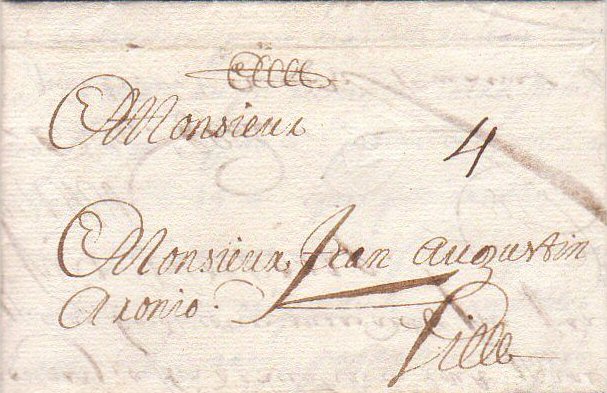 A Monsieur
4
A Monsieur Jean Augustin
Aronio
Lille